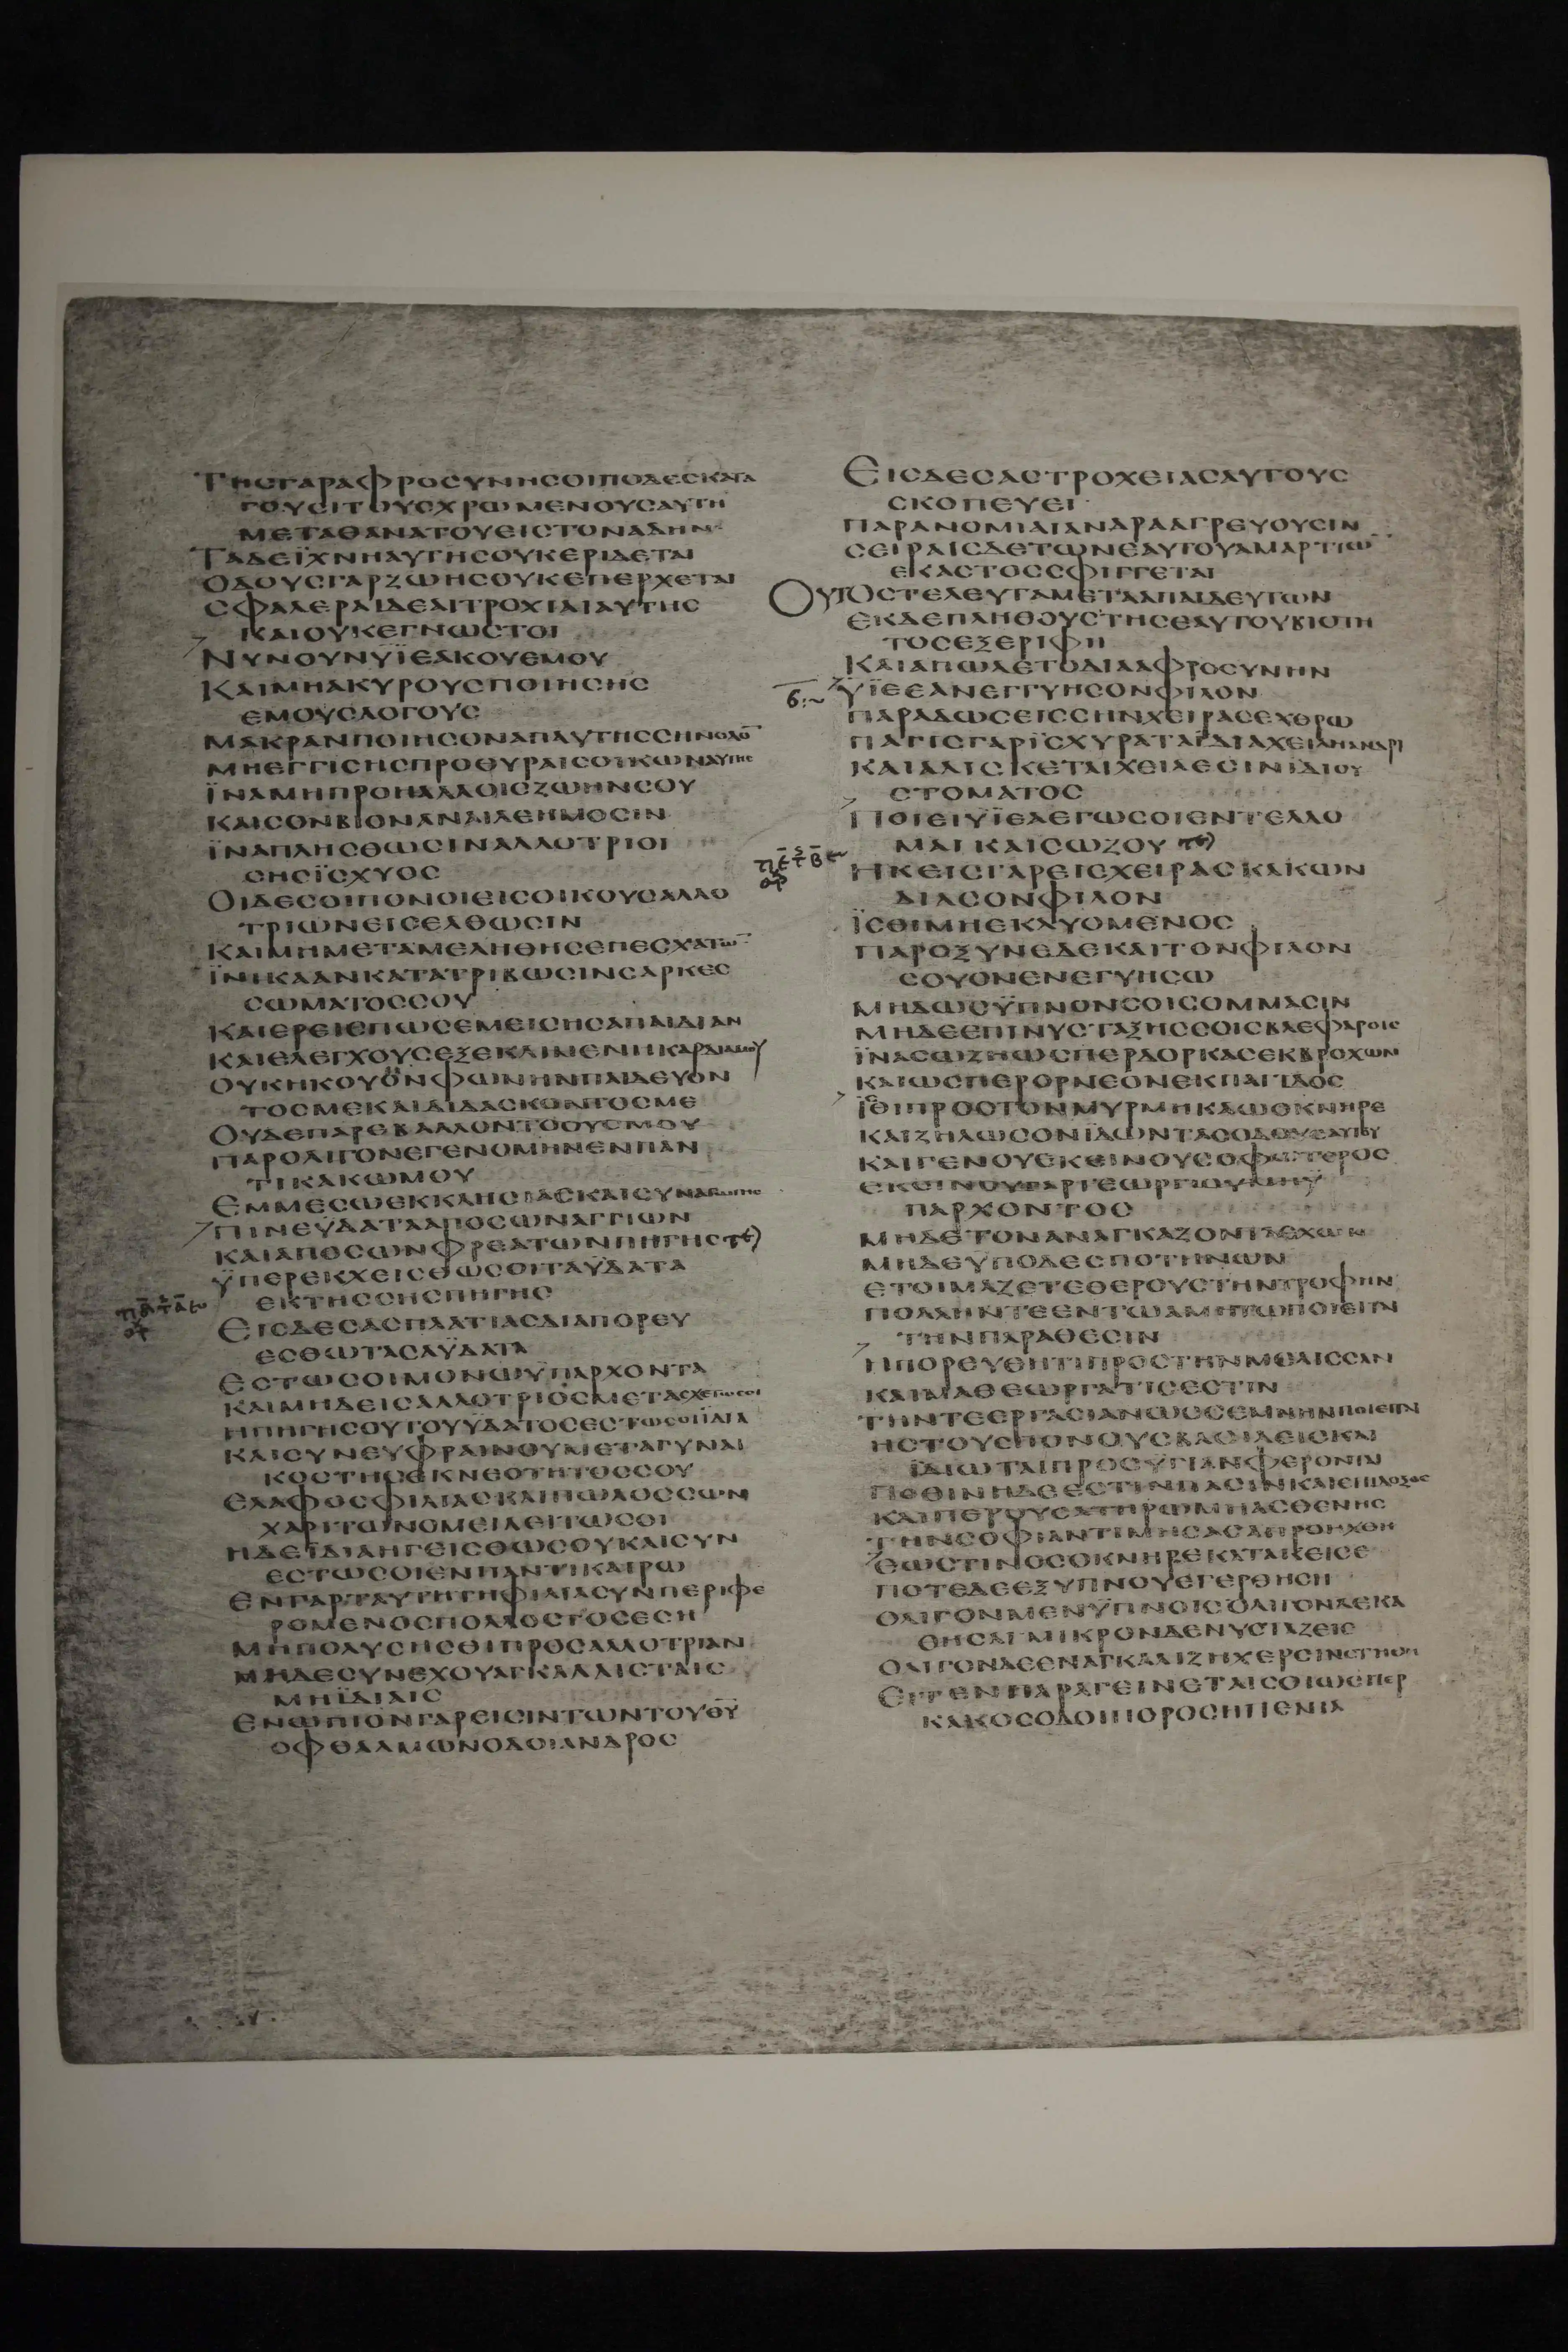 ΤΗϹΓΑΡΑΦΡΟϹΥΝΗϹΟΙΠΟΔΕϹΚΑΤΑ
ΓΟΥϹΙΤΟΥϹΧΡΩΜΕΝΟΥϹΑΥΤΗ
ΜΕΤΑΘΑΝΑΤΟΥΕΙϹΤΟΝΑΔΗΝ
ΤΑΔΕΪΧΝΗΑΥΤΗϹΟΥΚΕΡΙΔΕΤΑΙ
ΟΔΟΥϹΓΑΡΖΩΗϹΟΥΚΕΠΕΡΧΕΤΑΙ
ϹΦΑΛΕΡΑΙΔΕΑΙΤΡΟΧΙΑΙΑΥΤΗϹ
ΚΑΙΟΥΚΕΓΝΩϹΤΟΙ
ΝΥΝΟΥΝΥΪΕΑΚΟΥΕΜΟΥ
ΚΑΙΜΗΑΚΥΡΟΥϹΠΟΙΗϹΗϹ
ΕΜΟΥϹΛΟΓΟΥϹ
ΜΑΚΡΑΝΠΟΙΗϹΟΝΑΠΑΥΤΗϹϹΗΝΟΔΟ̅
ΜΗΕΓΓΙϹΗϹΠΡΟΘΥΡΑΙϹΟΙΚΩΝΑΥΤΗϹ
ΪΝΑΜΗΠΡΟΗΑΛΛΟΙϹΖΩΗΝϹΟΥ
ΚΑΙϹΟΝΒΙΟΝΑΝΑΙΛΕΗΜΟϹΙΝ
ΪΝΑΠΛΗϹΘΩϹΙΝΑΛΛΟΤΡΙΟΙ
ϹΗϹΪϹΧΥΟϹ
ΟΙΔΕϹΟΙΠΟΝΟΙΕΙϹΟΙΚΟΥϹΑΛΛΟ
ΤΡΙΩΝΕΙϹΕΛΘΩϹΙΝ
ΚΑΙΜΗΜΕΤΑΜΕΛΗΘΗϹΕΠΕϹΧΑΤΩ̅
ΪΝΗΚΑΑΝΚΑΤΑΤΡΙΒΩϹΙΝϹΑΡΚΕϹ
ϹΩΜΑΤΟϹϹΟΥ
ΚΑΙΕΡΕΙϹΠΩϹΕΜΕΙϹΗϹΑΠΑΙΔΙΑΝ
ΚΑΙΕΛΕΓΧΟΥϹΕΞΕΚΛΙΝΕΝΗΚΑΡΔΙΑΜΟΥ
ΟΥΚΗΚΟΥΟΝΦΩΝΗΝΠΑΙΔΕΥΟΝ
ΤΟϹΜΕΚΑΙΔΙΔΑϹΚΟΝΤΟϹΜΕ
ΟΥΔΕΠΑΡΕΒΑΛΛΟΝΤΟΟΥϹΜΟΥ
ΠΑΡΟΛΙΓΟΝΕΓΕΝΟΜΗΝΕΝΠΑΝ
ΤΙΚΑΚΩΜΟΥ
ΕΜΜΕϹΩΕΚΚΛΗϹΙΑϹΚΑΙϹΥΝΑΓΩΓΗϹ
ΠΙΝΕΫΔΑΤΑΑΠΟϹΩΝΑΓΓΙΩΝ
ΚΑΙΑΠΟϹΩΝΦΡΕΑΤΩΝΠΗΓΗϹ
ΫΠΕΡΕΚΧΕΙϹΘΩϹΟΙΤΑΫΔΑΤΑ
ΕΚΤΗϹϹΗϹΠΗΓΗϹ
ΕΙϹΔΕϹΑϹΠΛΑΤΙΑϹΔΙΑΠΟΡΕΥ
ΕϹΘΩΤΑϹΑΫΔΑΤΑ
ΕϹΤΩϹΟΙΜΟΝΩΫΠΑΡΧΟΝΤΑ
ΚΑΙΜΗΔΕΙϹΑΛΛΟΤΡΙΟϹΜΕΤΑϹΧΕΤΩϹΟΙ
ΗΠΗΓΗϹΟΥΤΟΥΫΔΑΤΟϹΕϹΤΩϹΟΙΪΔΙΑ
ΚΑΙϹΥΝΕΥΦΡΑΙΝΟΥΜΕΤΑΓΥΝΑΙ
ΚΟϹΤΗϹΕΚΝΕΟΤΗΤΟϹϹΟΥ
ΕΛΑΦΟϹΦΙΛΙΑϹΚΑΙΠΩΛΟϹϹΩΝ
ΧΑΡΙΤΩΝΟΜΕΙΛΕΙΤΩϹΟΙ
ΗΔΕΪΔΙΑΗΓΕΙϹΘΩϹΟΥΚΑΙϹΥΝ
ΕϹΤΩϹΟΙΕΝΠΑΝΤΙΚΑΙΡΩ
ΕΝΓΑΡΤΑΥΤΗΤΗΦΙΛΙΑϹΥΝΠΕΡΙΦΕ
ΡΟΜΕΝΟϹΠΟΛΛΟϹΤΟϹΕϹΗ
ΜΗΠΟΛΥϹΗϹΘΙΠΡΟϹΑΛΛΟΤΡΙΑΝ
ΜΗΔΕϹΥΝΕΧΟΥΑΓΚΑΛΑΙϹΤΑΙϹ
ΜΗΪΔΙΑΙϹ
ΕΝΩΠΙΟΝΓΑΡΕΙϹΙΝΤΩΝΤΟΥΘ̅Υ̅
ΟΦΘΑΛΜΩΝΟΔΟΙΑΝΔΡΟϹ
ΕΙϹΔΕϹΑϹΤΡΟΧΕΙΑϹΑΥΤΟΥϹ
ϹΚΟΠΕΥΕΙ
ΠΑΡΑΝΟΜΙΑΙΑΝΔΡΑΑΓΡΕΥΟΥϹΙΝ
ϹΕΙΡΑΙϹΔΕΤΩΝΕΑΥΤΟΥΑΜΑΡΤΙΩ̅
ΕΚΑΣΤΟϹϹΦΙΓΓΕΤΑΙ
ΟΥΤΟϹΤΕΛΕΥΤΑΜΕΤΑΑΠΑΙΔΕΥΤΩΝ
ΕΚΔΕΠΛΗΘΟΥϹΤΗϹΕΑΥΤΟΥΒΙΟΤΗ
ΤΟϹΕΞΕΡΙΦΗ
ΚΑΙΑΠΩΛΕΤΟΔΙΑΑΦΡΟϹΥΝΗΝ
ΫΪΕΕΑΝΕΓΓΥΗϹΟΝΦΙΛΟΝ
ΠΑΡΑΔΩϹΕΙϹϹΗΝΧΕΙΡΑϹΕΧΘΡΩ
ΠΑΓΙϹΓΑΡΪϹΧΥΡΑΤΑΪΔΙΑΧΕΙΛΗΑΝΔΡΙ
ΚΑΙΑΛΙϹΚΕΤΑΙΧΕΙΛΕϹΙΝΪΔΙΟΥ
ϹΤΟΜΑΤΟϹ
ΠΟΙΕΙΥΪΕΑΕΓΩϹΟΙΕΝΤΕΛΛΟ
ΜΑΙΚΑΙϹΩΖΟΥ
ΗΚΕΙϹΓΑΡΕΙϹΧΕΙΡΑϹΚΑΚΩΝ
ΔΙΑϹΟΝΦΙΛΟΝ
ΪϹΘΙΜΗΕΚΛΥΟΜΕΝΟϹ
ΠΑΡΟΞΥΝΕΔΕΚΑΙΤΟΝΦΙΛΟΝ
ϹΟΥΟΝΕΝΕΓΥΗϹΩ
ΜΗΔΩϹΫΠΝΟΝϹΟΙϹΟΜΜΑϹΙΝ
ΜΗΔΕΕΠΙΝΥϹΤΑΞΗϹϹΟΙϹΒΛΕΦΑΡΟΙϹ
ΪΝΑϹΩΖΗΩϹΠΕΡΔΟΡΚΑϹΕΚΒΡΟΧΩΝ
ΚΑΙΩϹΠΕΡΟΡΝΕΟΝΕΚΠΑΓΙΔΟϹ
ΪΘΙΠΡΟϹΤΟΝΜΥΡΜΗΚΑΩΟΚΝΗΡΕ
ΚΑΙΖΗΛΩϹΟΝΪΔΩΝΤΑϹΟΔΟΥϹΑΥΤΟΥ
ΚΑΙΓΕΝΟΥΕΚΕΙΝΟΥϹΟΦΩΤΕΡΟϹ
ΠΑΡΧΟΝΤΟϹ
ΜΗΔΕΤΟΝΑΝΑΓΚΑΖΟΝΤΑΕΧΩΝ
ΜΗΔΕΫΠΟΔΕϹΠΟΤΗΝΩΝ
ΕΤΟΙΜΑΖΕΤΕΘΕΡΟΥϹΤΗΝΤΡΟΦΗΝ
ΠΟΛΛΗΝΤΕΕΝΤΩΑΜΗΤΩΠΟΙΕΙΤΑΙ
ΤΗΝΠΑΡΑΘΕϹΙΝ
ΗΠΟΡΕΥΘΗΤΙΠΡΟϹΤΗΝΜΕΛΙϹϹΑΝ
ΚΑΙΜΑΘΕΩϹΕΡΓΑΤΙϹΕϹΤΙΝ
ΤΗΝΤΕΕΡΓΑϹΙΑΝΩϹϹΕΜΝΗΝΠΟΙΕΙΤΑΙ
ΗϹΤΟΥϹΠΟΝΟΥϹΒΑϹΙΛΕΙϹΚΑΙ
ΪΔΙΩΤΑΙΠΡΟϹΥΓΙΑΝΦΕΡΟΝΤΑΙ
ΠΟΘΙΝΗΔΕΕϹΤΙΝΠΑϹΙΝΚΑΙΕΠΙΔΟΞΟϹ
ΚΑΙΠΕΡΟΥϹΑΤΗΡΩΜΗΑϹΘΕΝΗϹ
ΤΗΝϹΟΦΙΑΝΤΙΜΗϹΑϹΑΠΡΟΗΧΘΗ
ΕΩϹΤΙΝΟϹΟΚΝΗΡΕΚΑΤΑΚΕΙϹΕ
ΠΟΤΕΔΕΕΞΥΠΝΟΥΕΓΕΡΘΗϹΗ
ΟΛΙΓΟΝΜΕΝΫΠΝΟΙϹΟΛΙΓΟΝΔΕΚΑ
ΘΗϹΑΙΜΙΚΡΟΝΔΕΝΥϹΤΑΖΕΙϹ
ΟΛΙΓΟΝΔΕΕΝΑΓΚΑΛΙΖΗΧΕΡϹΙΝϹΤΗΘΗ
ΕΙΤΕΝΠΑΡΑΓΕΙΝΕΤΑΙϹΟΙΩϹΠΕΡ
ΚΑΚΟϹΟΔΟΙΠΟΡΟϹΗΠΕΝΙΑ